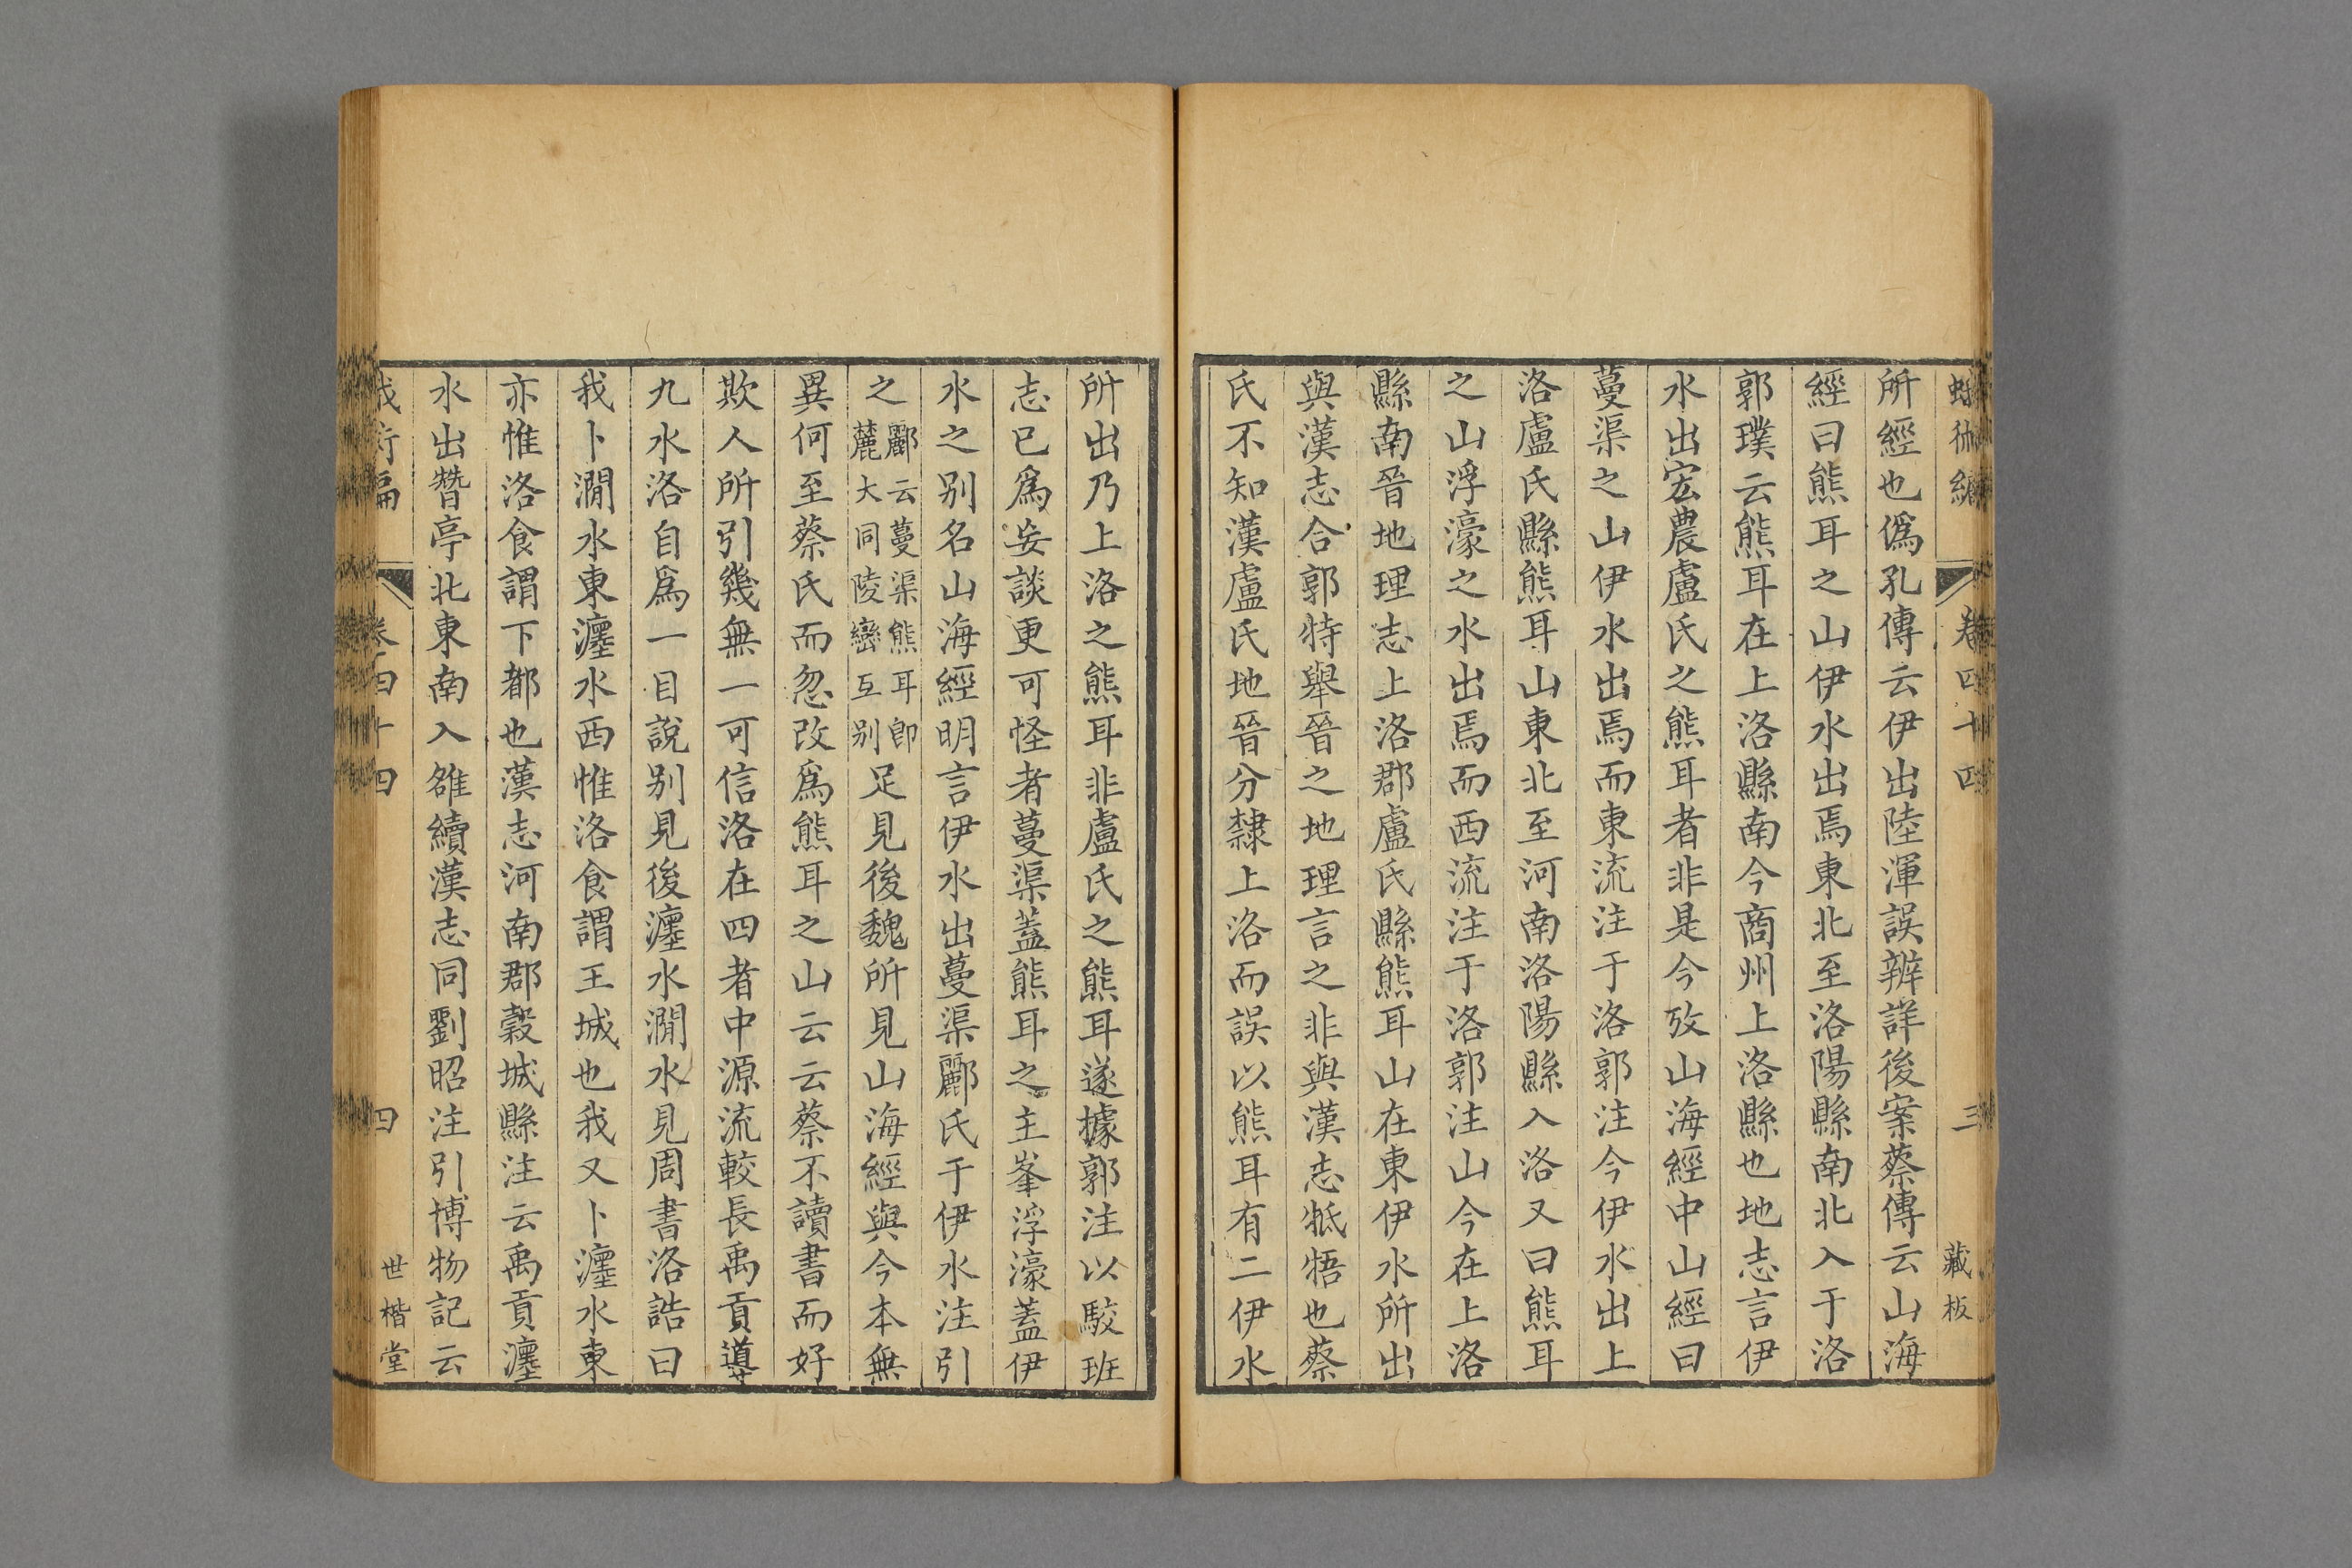 蛾術編 卷四十四 三 藏板
所經也僞孔傳云伊出陸渾誤辨詳後案蔡傳云山海
經曰熊耳之山伊水出焉東北至洛陽縣南北入于洛
郭璞云熊耳在上洛縣南今商州上洛縣也地志言伊
水出宏農盧氏之熊耳者非是今攷山海經中山經曰
蔓渠之山伊水出焉而東流注于洛郭注今伊水出上
洛盧氏縣熊耳山東北至河南洛陽縣入洛又曰熊耳
之山浮濠之水出焉而西流注于洛郭注山今在上洛
縣南晉地理志上洛郡盧氏縣熊耳山在東伊水所出
與漢志合郭特舉晉之地理言之非與漢志牴牾也蔡
氏不知漢盧氏地晉分隸上洛而誤以熊耳有二伊水
所出乃上洛之熊耳非盧氏之熊耳遂據郭注以駮班
志已爲妄談更可怪者蔓渠蓋熊耳之主峯浮濠蓋伊
水之别名山海經明言伊水出蔓渠酈氏于伊水注引
之酈云蔓渠熊耳卽麓大同陵巒互别足見後魏所見山海經與今本無
異何至蔡氏而忽改爲熊耳之山云云蔡不讀書而好
欺人所引幾無一可信洛在四者中源流較長禹貢導
九水洛自爲一目說别見後瀍水澗水見周書洛誥曰
我卜澗水東瀍水西惟洛食謂王城也我又卜瀍水東
亦惟洛食謂下都也漢志河南郡穀城縣注云禹貢瀍
水出朁亭北東南入雒續漢志同劉昭注引博物記云
蛾術編 卷四十四 四 世楷堂